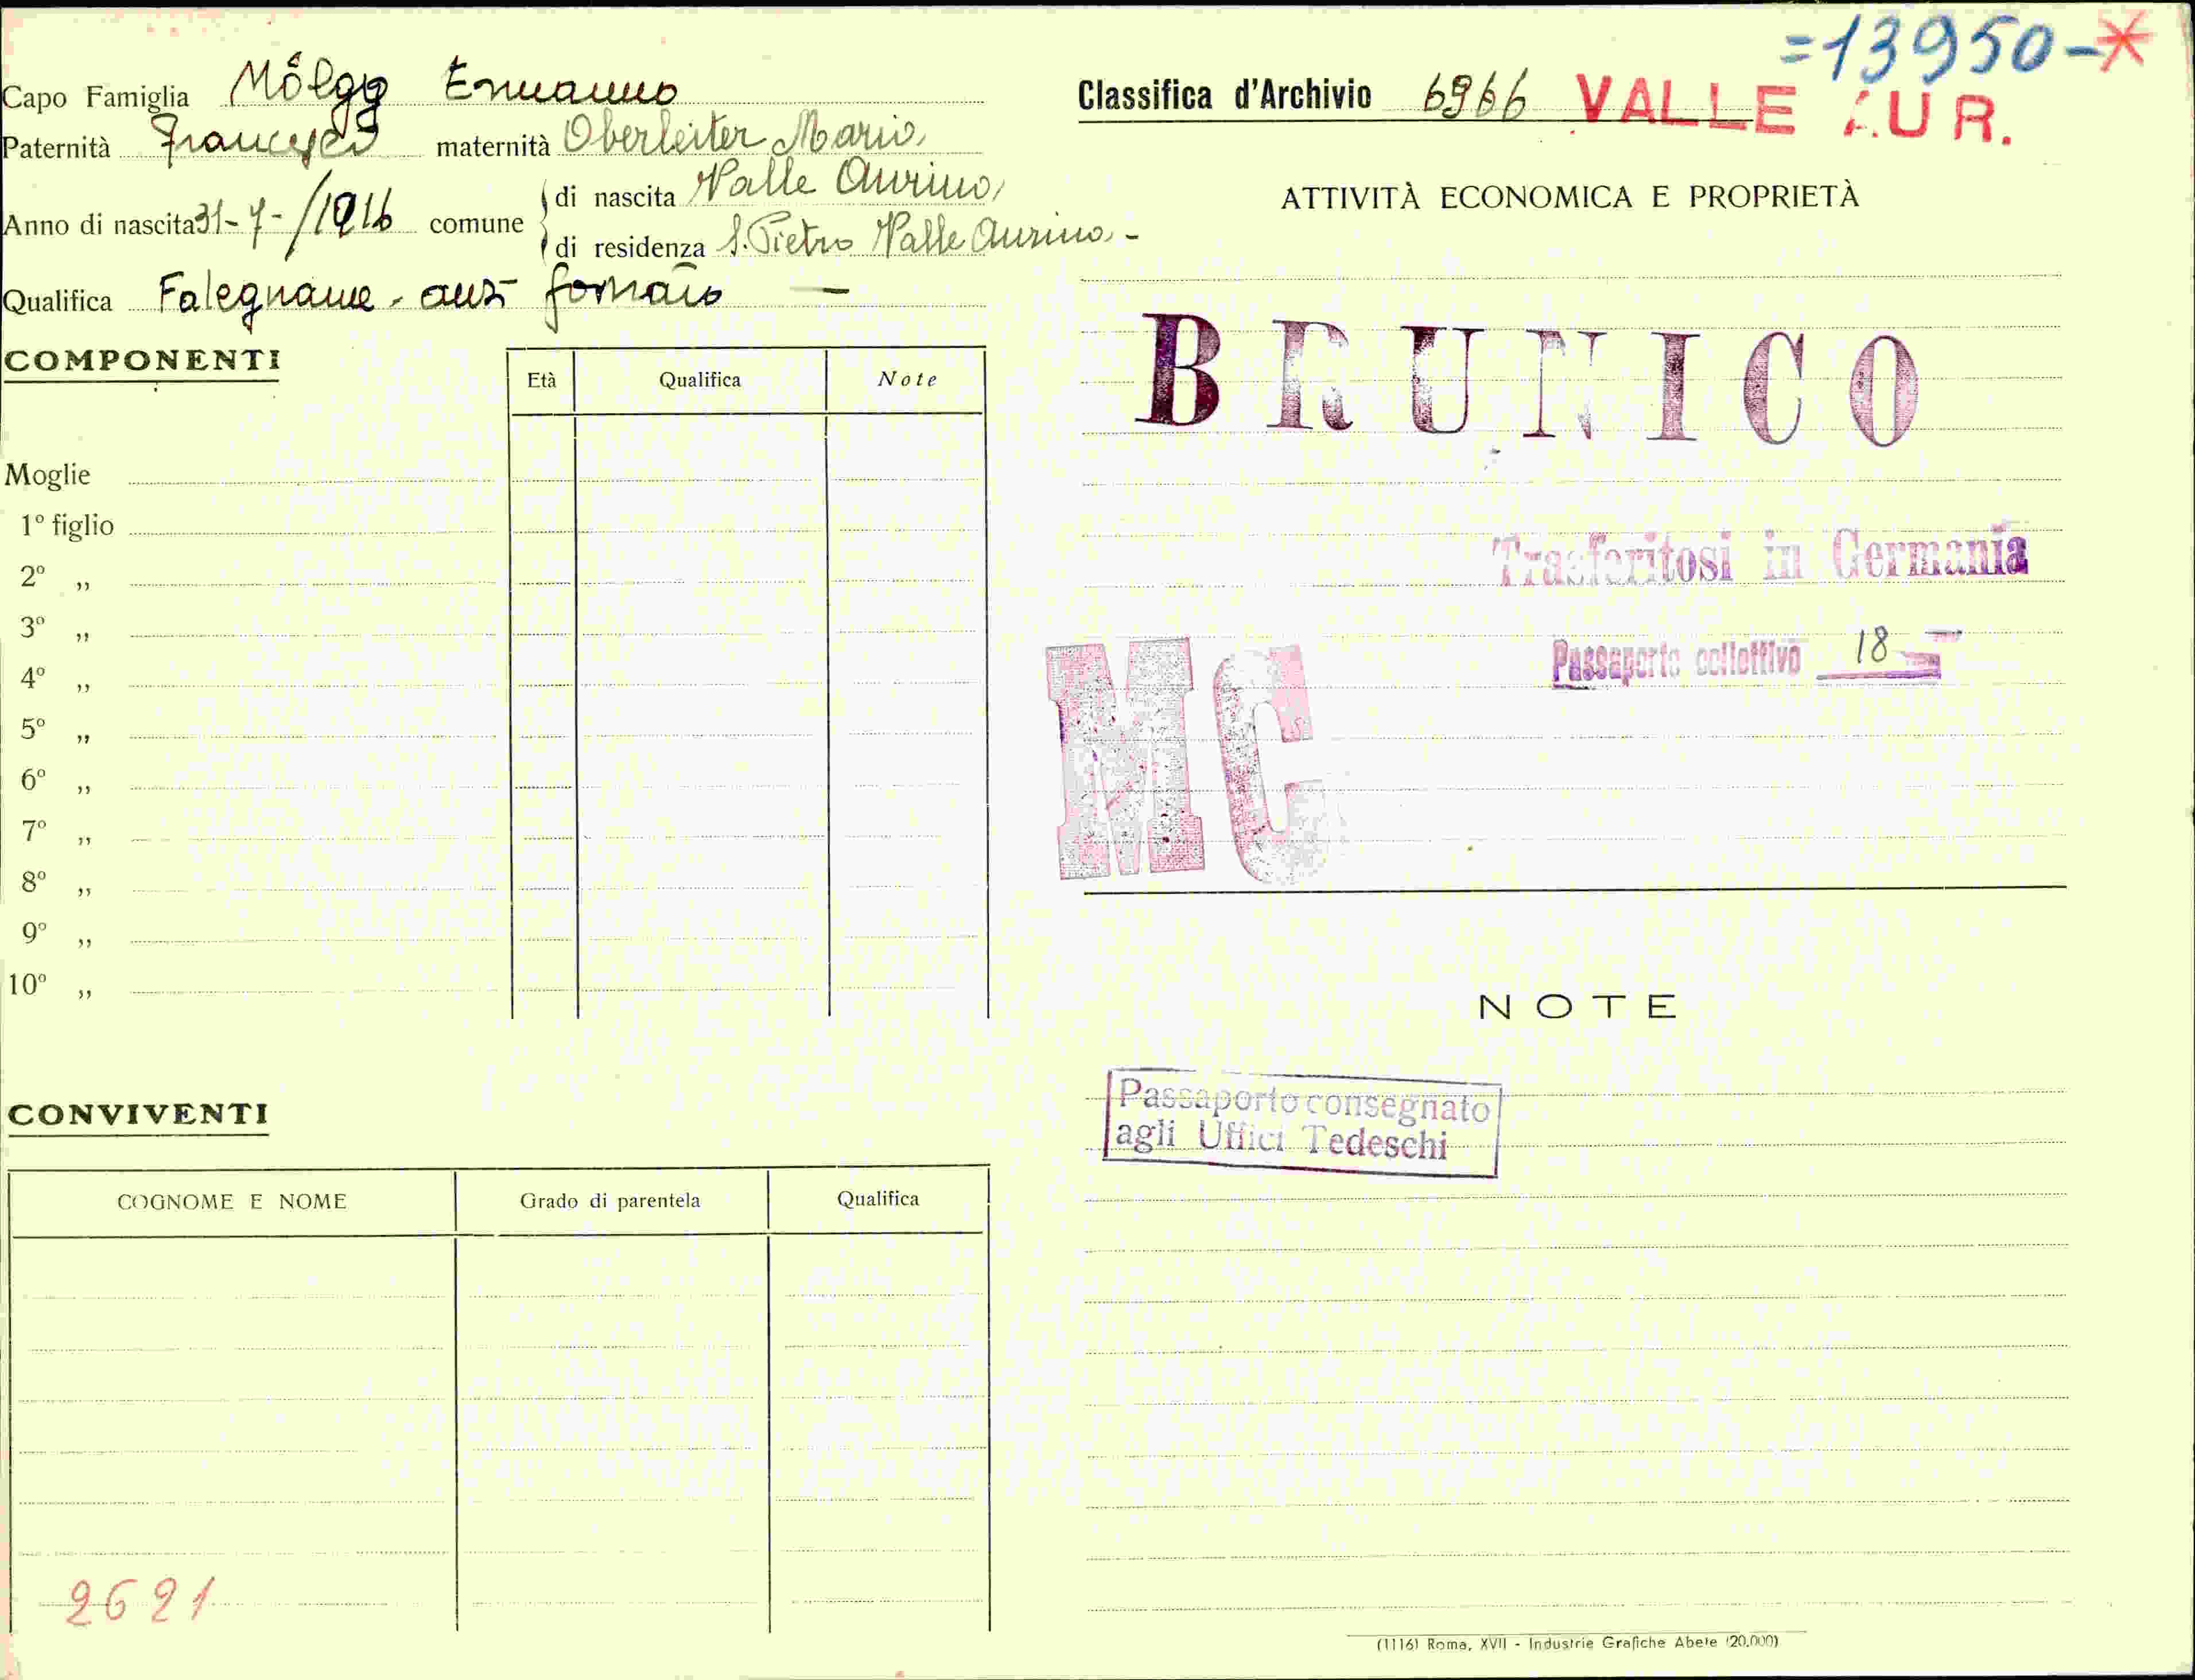 Capo Famiglia Mölgg Ermanno
Paternità Francesco maternità Oberleiter Maria
Anno di nascita 31-7-/1916 comune di nascita Valle Aurina
di residenza S. Pietro Valle Aurina -
Qualifica Falegname - aus fornaio —
COMPONENTI
Età Qualifica Note
Moglie
1º figlio
2º ,,
3º ,,
4º ,,
5º ,,
6º ,,
7º ,,
8º ,,
9º ,,
10º ,,
CONVIVENTI
COGNOME E NOME Grado di parentela Qualifica
2621
=13950-*
Classifica d'Archivio 6966 VALLE AUR.
ATTIVITÀ ECONOMICA E PROPRIETÀ
BRUNICO
Trasferitosi in Germania
Passaporto collettivo 18
MC
NOTE
Passaporto consegnato
agli Uffici Tedeschi
(1116) Roma, XVII - Industrie Grafiche Abete (20.000)